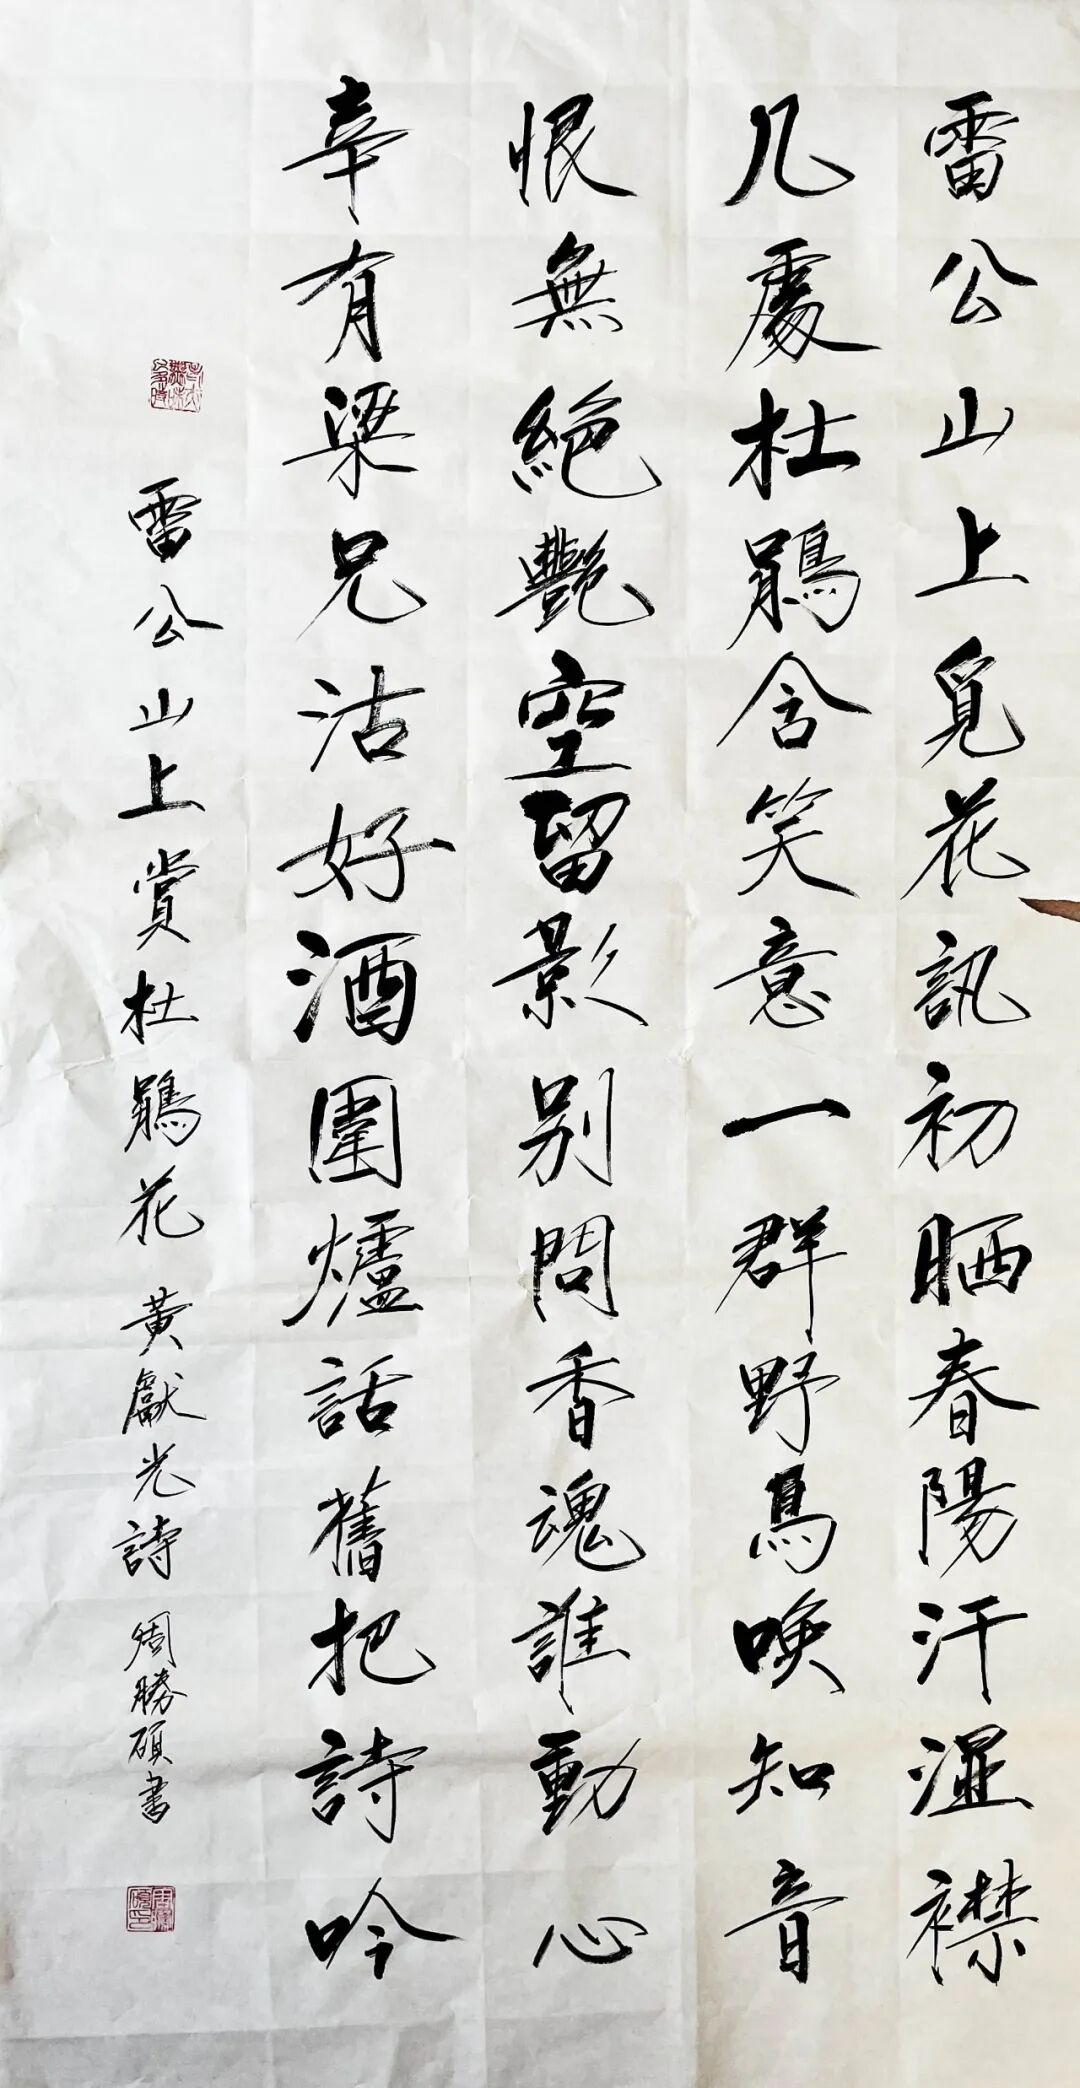 雷公山上覓花訊初晒春陽汗濕襟
几處杜鵑含笑意一群野鳥喚知音
恨無絕艷空留影别問香魂誰動心
幸有梁兄沽好酒圍爐話舊把詩吟
雷公山上賞杜鵑花 黃獻光詩 周勝碩書